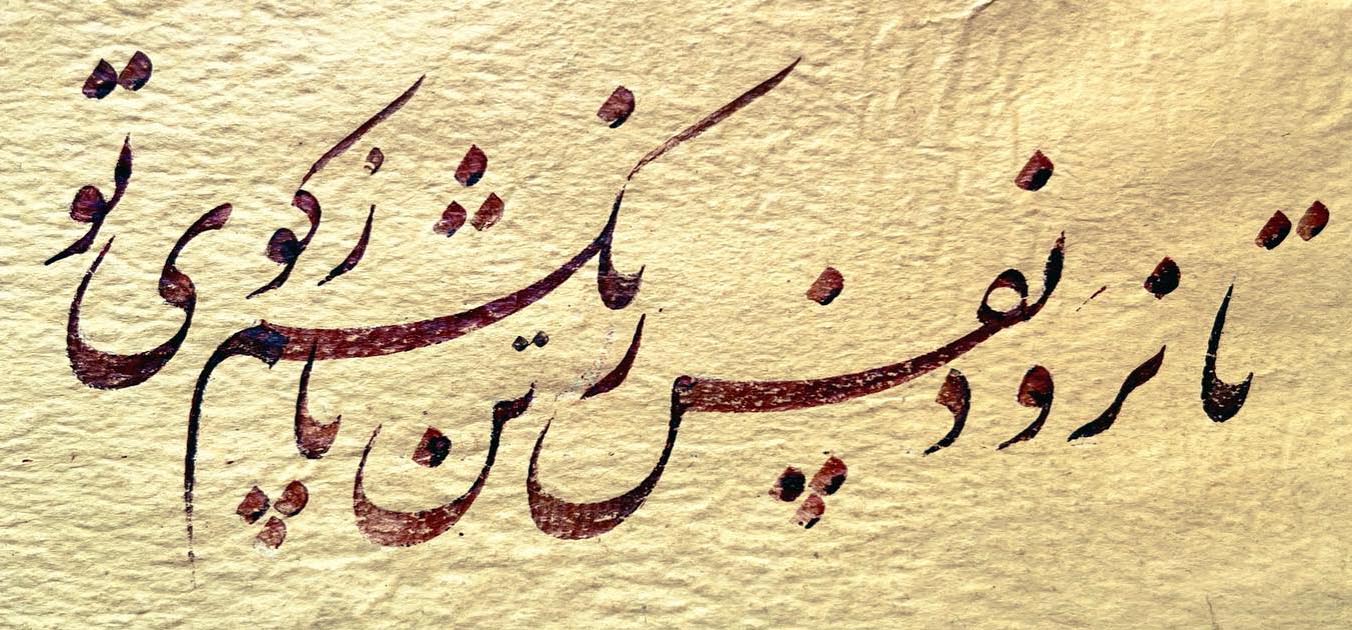 تا نرود نفس ز تن پا نکشم ز کوی تو